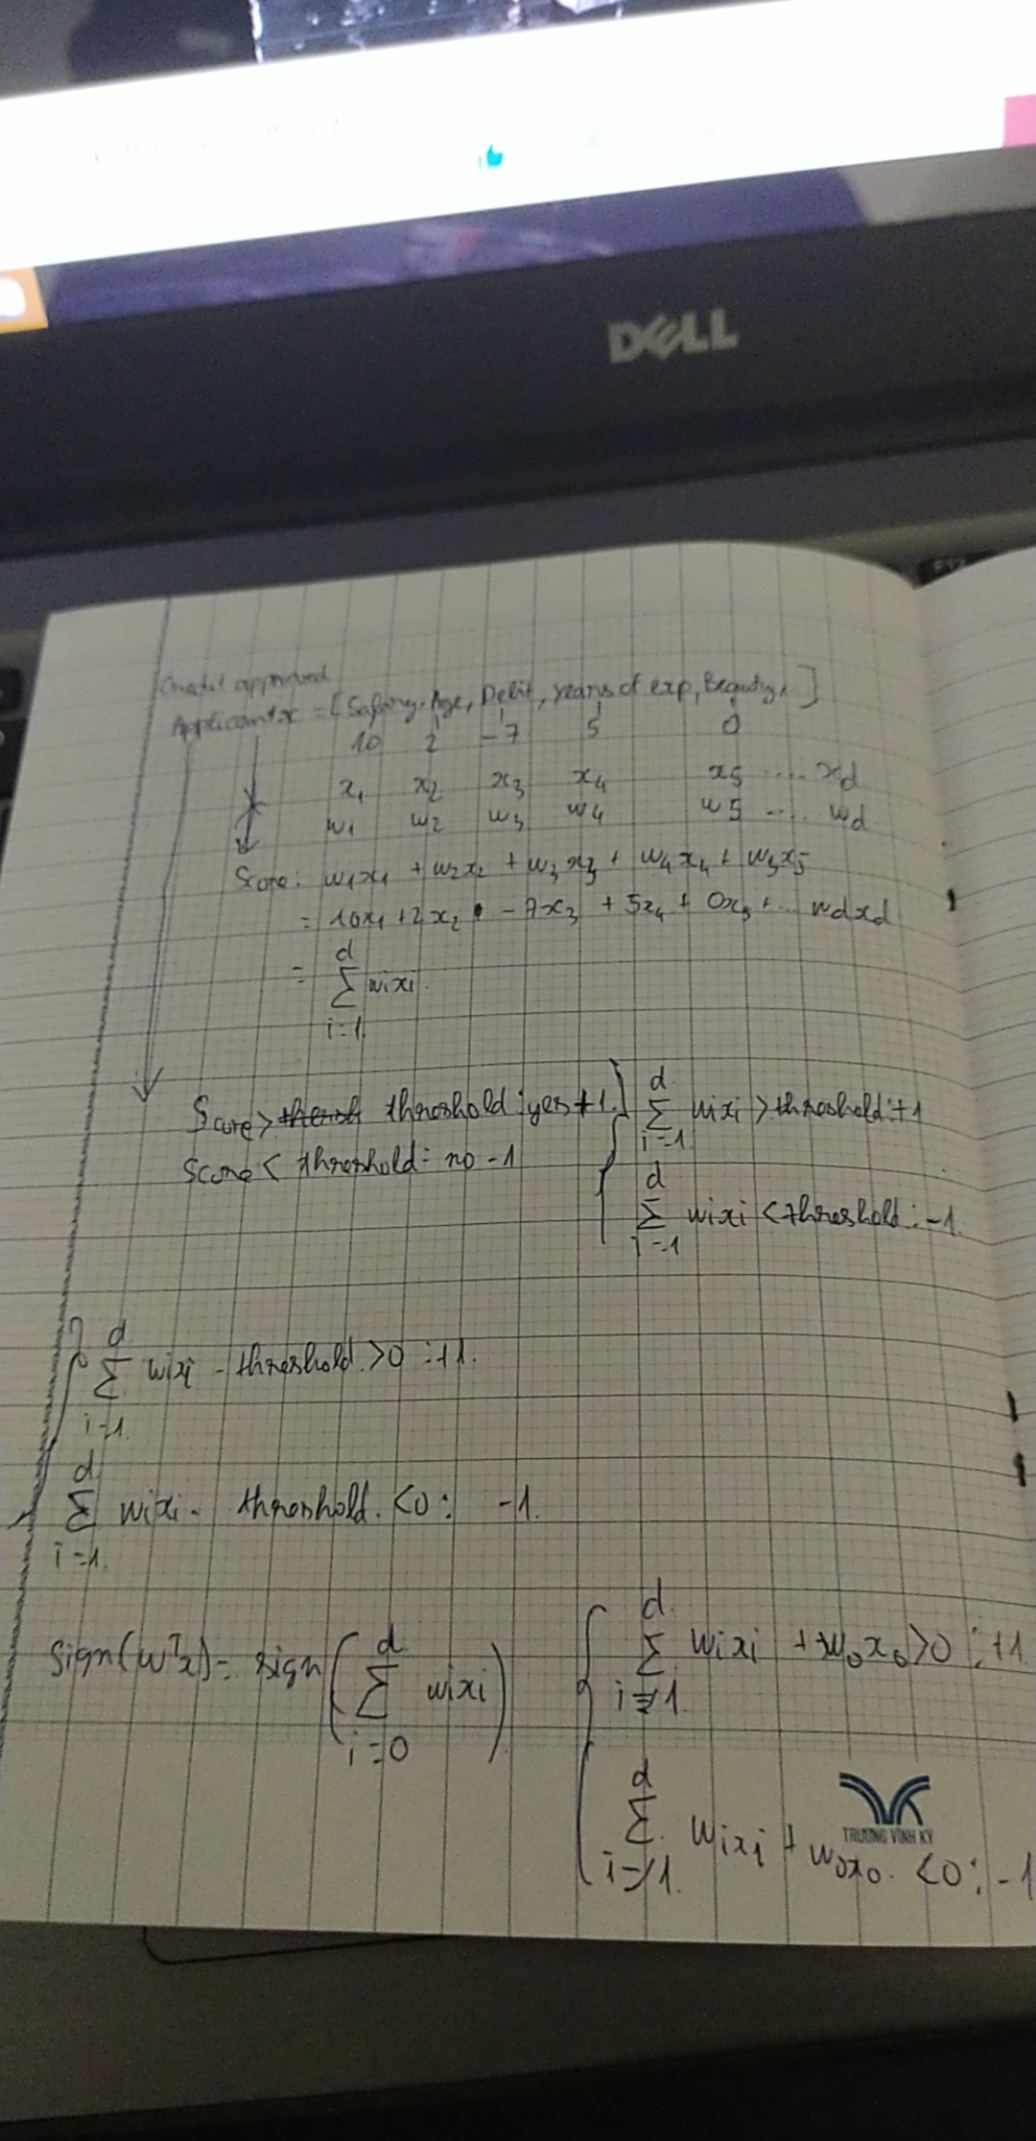 DELL
Credit approval
Applicant x = [Salary, Age, Debit, years of exp, Beauty, ]
10 2 -7 5 0
x1 x2 x3 x4 x5 .... xd
w1 w2 w3 w4 w5 .... wd
Score: w1x1 + w2x2 + w3x3 + w4x4 + w5x5
= 10x1 + 2x2 - 7x3 + 5x4 + 0x5 + ... wdxd
= d∑i=1 wixi
Score > threshold: yes +1
Score < threshold: no -1
d∑i=1 wixi > threshold: +1
d∑i=1 wixi < threshold: -1
d∑i=1 wixi - threshold > 0: +1.
d∑i=1 wixi - threshold. < 0: -1.
Sign(wTx) = sign(d∑i=0 wixi)
d∑i=1 wixi + w0x0 > 0: +1
d∑i=1 wixi + w0x0. < 0: -1
TRƯƠNG VĨNH KÝ